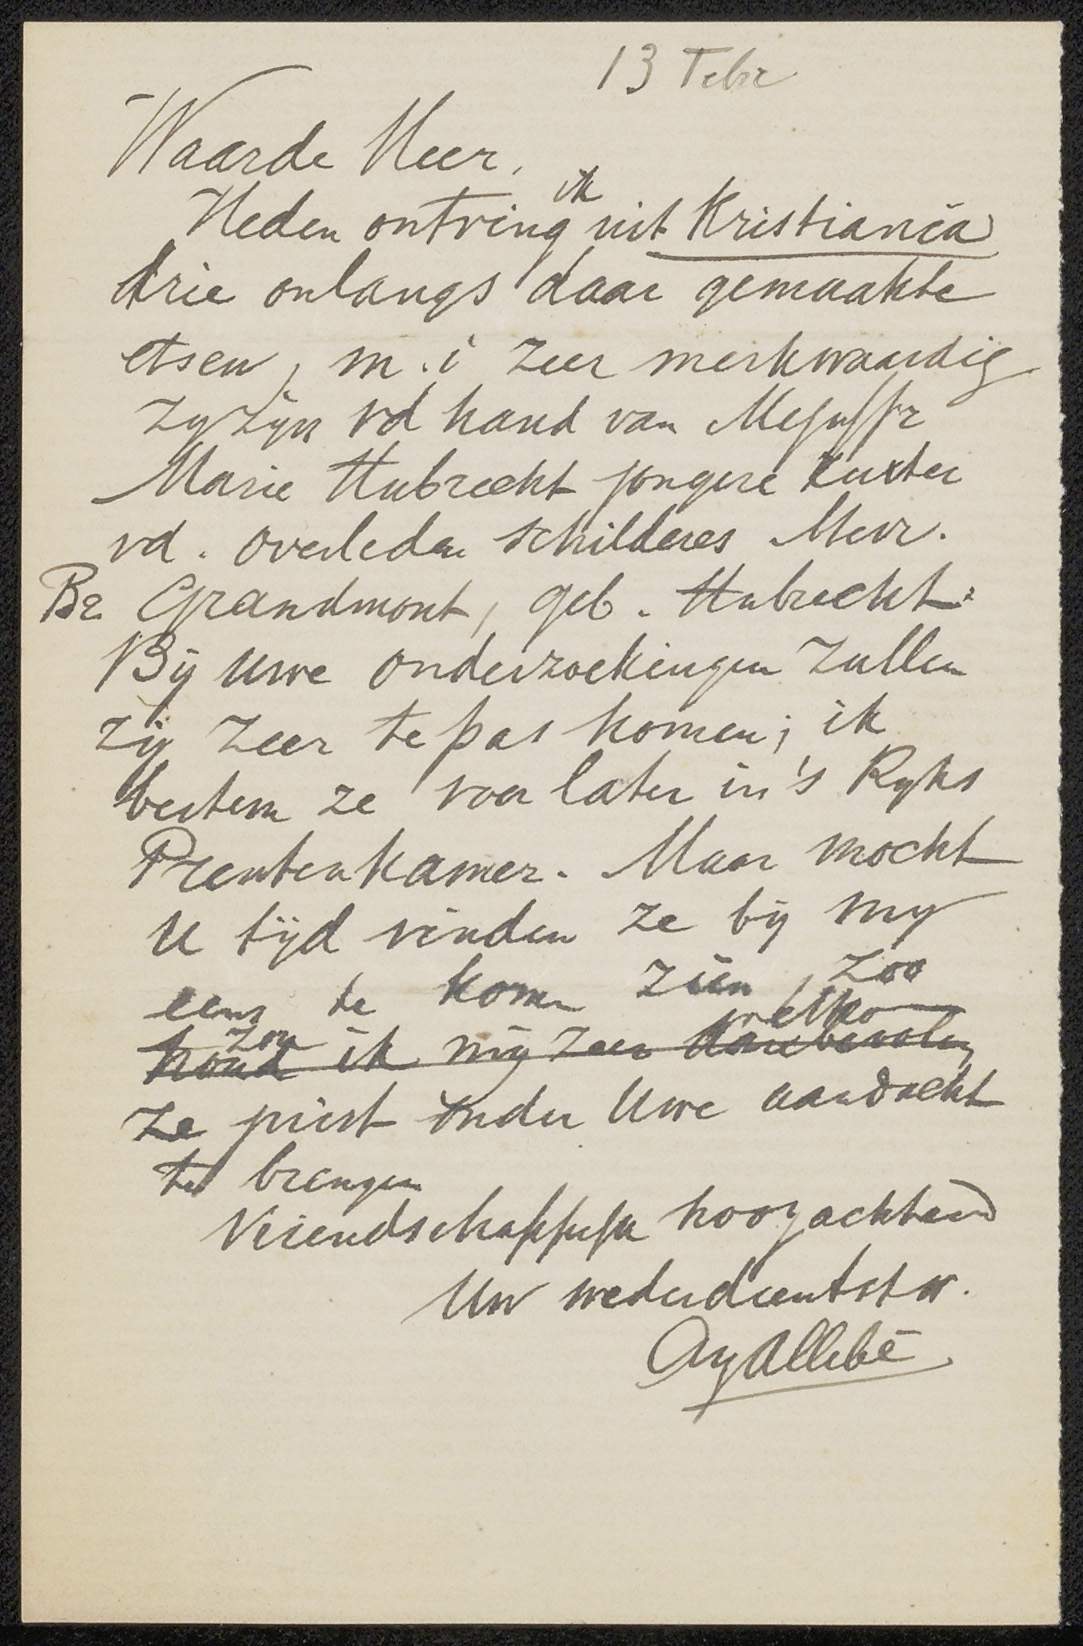 13 Febr
Waarde Heer,
Heden ontving ik uit Kristiania
drie onlangs daar gemaakte
etsen, m.i zeer merkwaardig
zy zijn vd hand van Mejuffr
Marie Hubrecht jongere zuster
vd. overleden schilderes Mevr.
Br. Grandmont, geb. Hubrecht.
Bij uwe onderzoekingen zullen
zij zeer te pas komen; ik
bestem ze voor later in 's Ryks
Prentenkamer. Maar mocht
U tijd vinden ze bij my
eens te komen zien, zoo
houd ik mij zeer
ze onder Uwe aandacht
te brengen
Vriendschappelijk hoogachtend
Uw wederdienstw.
AyAllebé